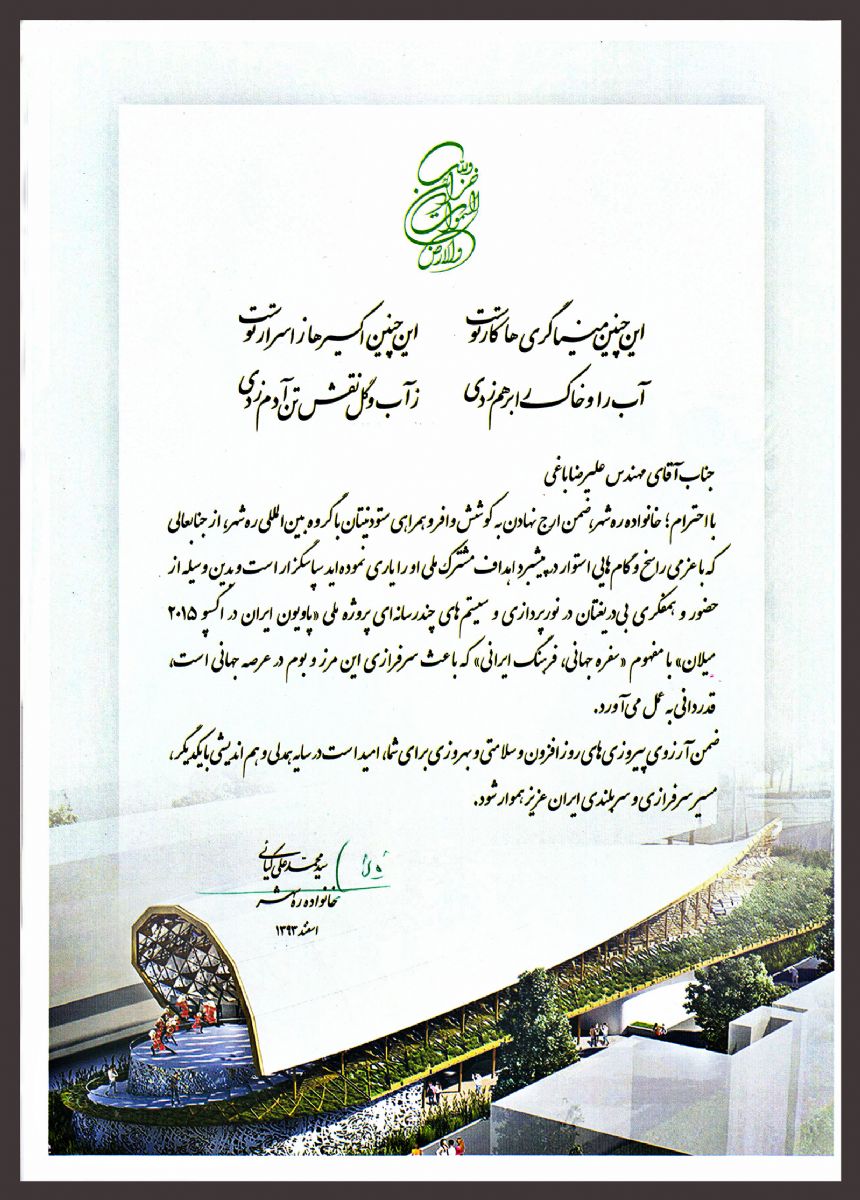 ولله خزائن السموات والارض
این چنین میناگری ها کار توست این چنین اکسیرها ز اسرار توست
آب را و خاک را برهم زدی ز آب و گل نقش تن آدم زدی
جناب آقای مهندس علیرضا باغی
با احترام؛ خانواده ره شهر، ضمن ارج نهادن به کوشش وافر و همراهی ستودنیتان با گروه بین المللی ره شهر، از جنابعالی
که با عزمی راسخ و گام هایی استوار در پیشبرد اهداف مشترک ملی او را یاری نموده اید سپاسگزار است و بدین وسیله از
حضور و همفکری بی دریغتان در نورپردازی و سیستم های چندرسانه ای پروژه ملی «پاویون ایران در اکسپو ۲۰۱۵
میلان» با مفهوم «سفره جهانی، فرهنگ ایرانی» که باعث سرفرازی این مرز و بوم در عرصه جهانی است،
قدردانی به عمل می آورد.
ضمن آرزوی پیروزی های روز افزون و سلامتی و بهروزی برای شما، امید است در سایه همدلی و هم اندیشی با یکدیگر،
مسیر سرفرازی و سربلندی ایران عزیز هموار شود.
سید محمد علی کیانی
خانواده ره شهر
اسفند ۱۳۹۳